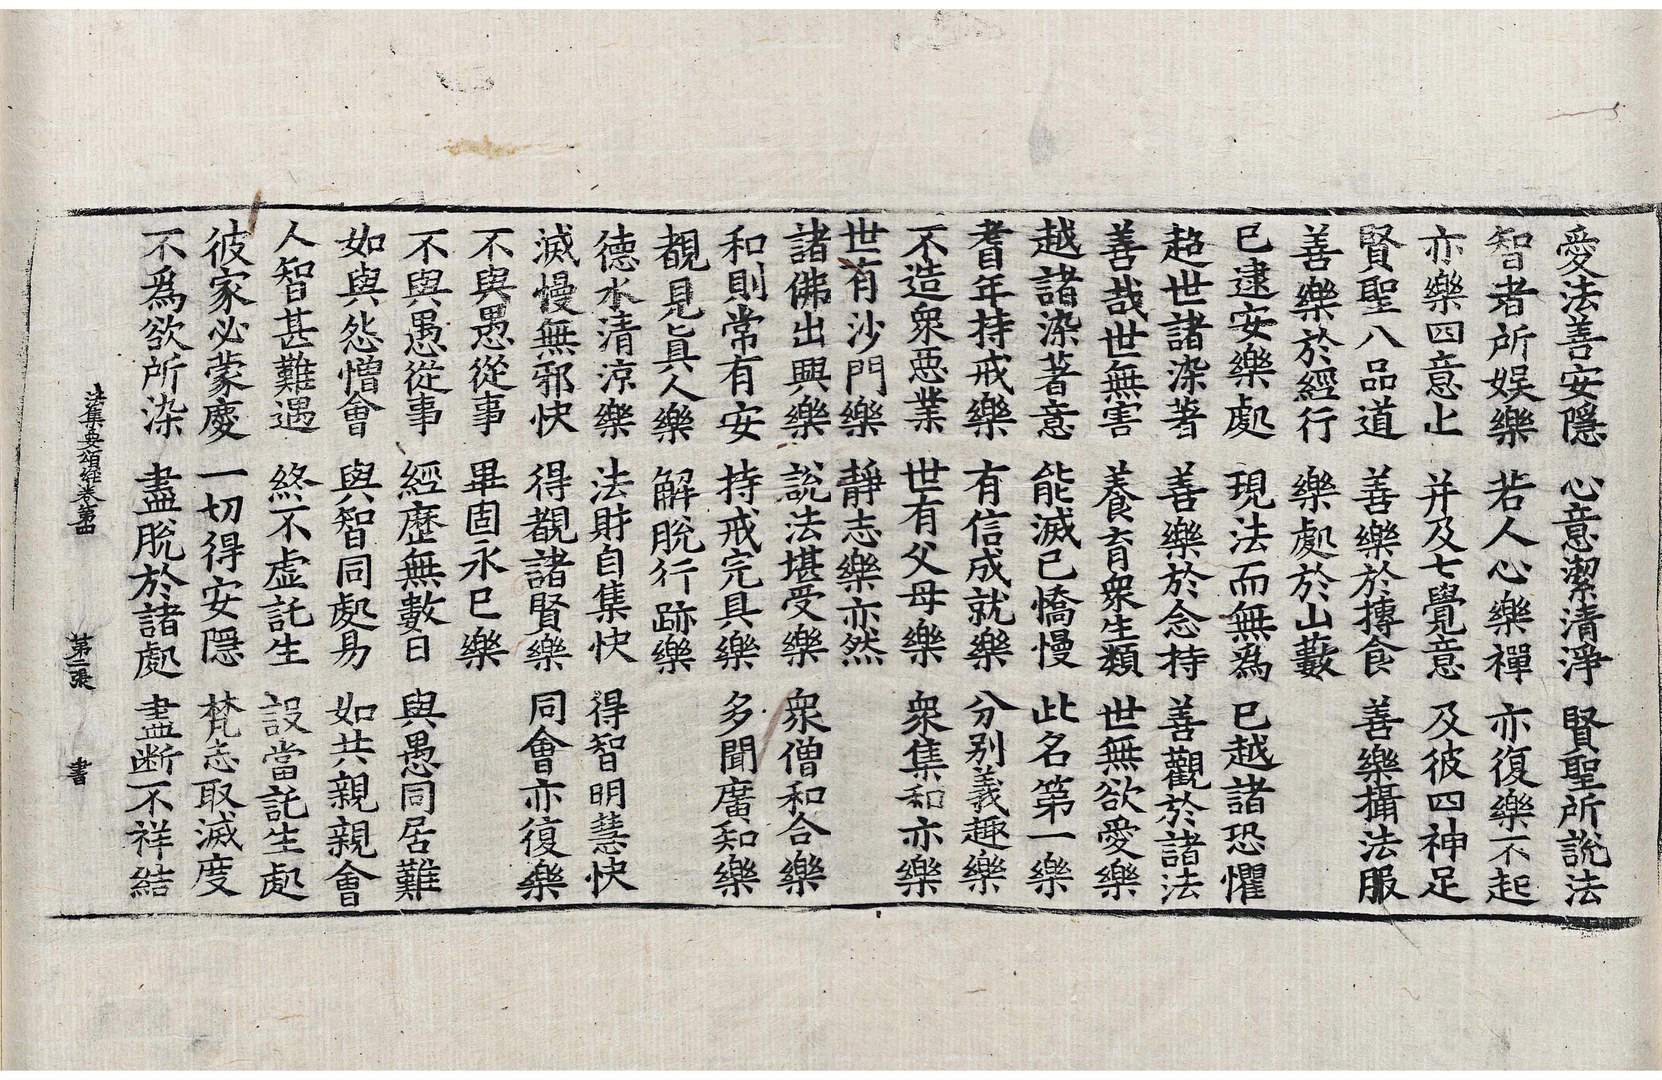 愛法善安隱 心意潔清淨 賢聖所說法
智者所娛樂 若人心樂禪 亦復樂不起
亦樂四意止 并及七覺意 及彼四神足
賢聖八品道 善樂於摶食 善樂攝法服
善樂於經行 樂處於山藪
已逮安樂處 現法而無為 已越諸恐懼
超世諸染著 善樂於念持 善觀於諸法
善哉世無害 養育衆生類 世無欲愛樂
越諸染著意 能滅己憍慢 此名第一樂
耆年持戒樂 有信成就樂 分別義趣樂
不造衆惡業 世有父母樂 衆集和亦樂
世有沙門樂 靜志樂亦然
諸佛出興樂 說法堪受樂 衆僧和合樂
和則常有安 持戒完具樂 多聞廣知樂
覩見眞人樂 解脫行跡樂
德水清涼樂 法財自集快 得智明慧快
滅慢無邪快 得覩諸賢樂 同會亦復樂
不與愚從事 畢固永已樂
不與愚從事 經歷無數日 與愚同居難
如與怨憎會 與智同處易 如共親親會
人智甚難遇 終不虛託生 設當託生處
彼家必蒙慶 一切得安隱 梵志取滅度
不爲欲所染 盡脫於諸處 盡断不祥結
法集要頌經卷第四 第二張 書